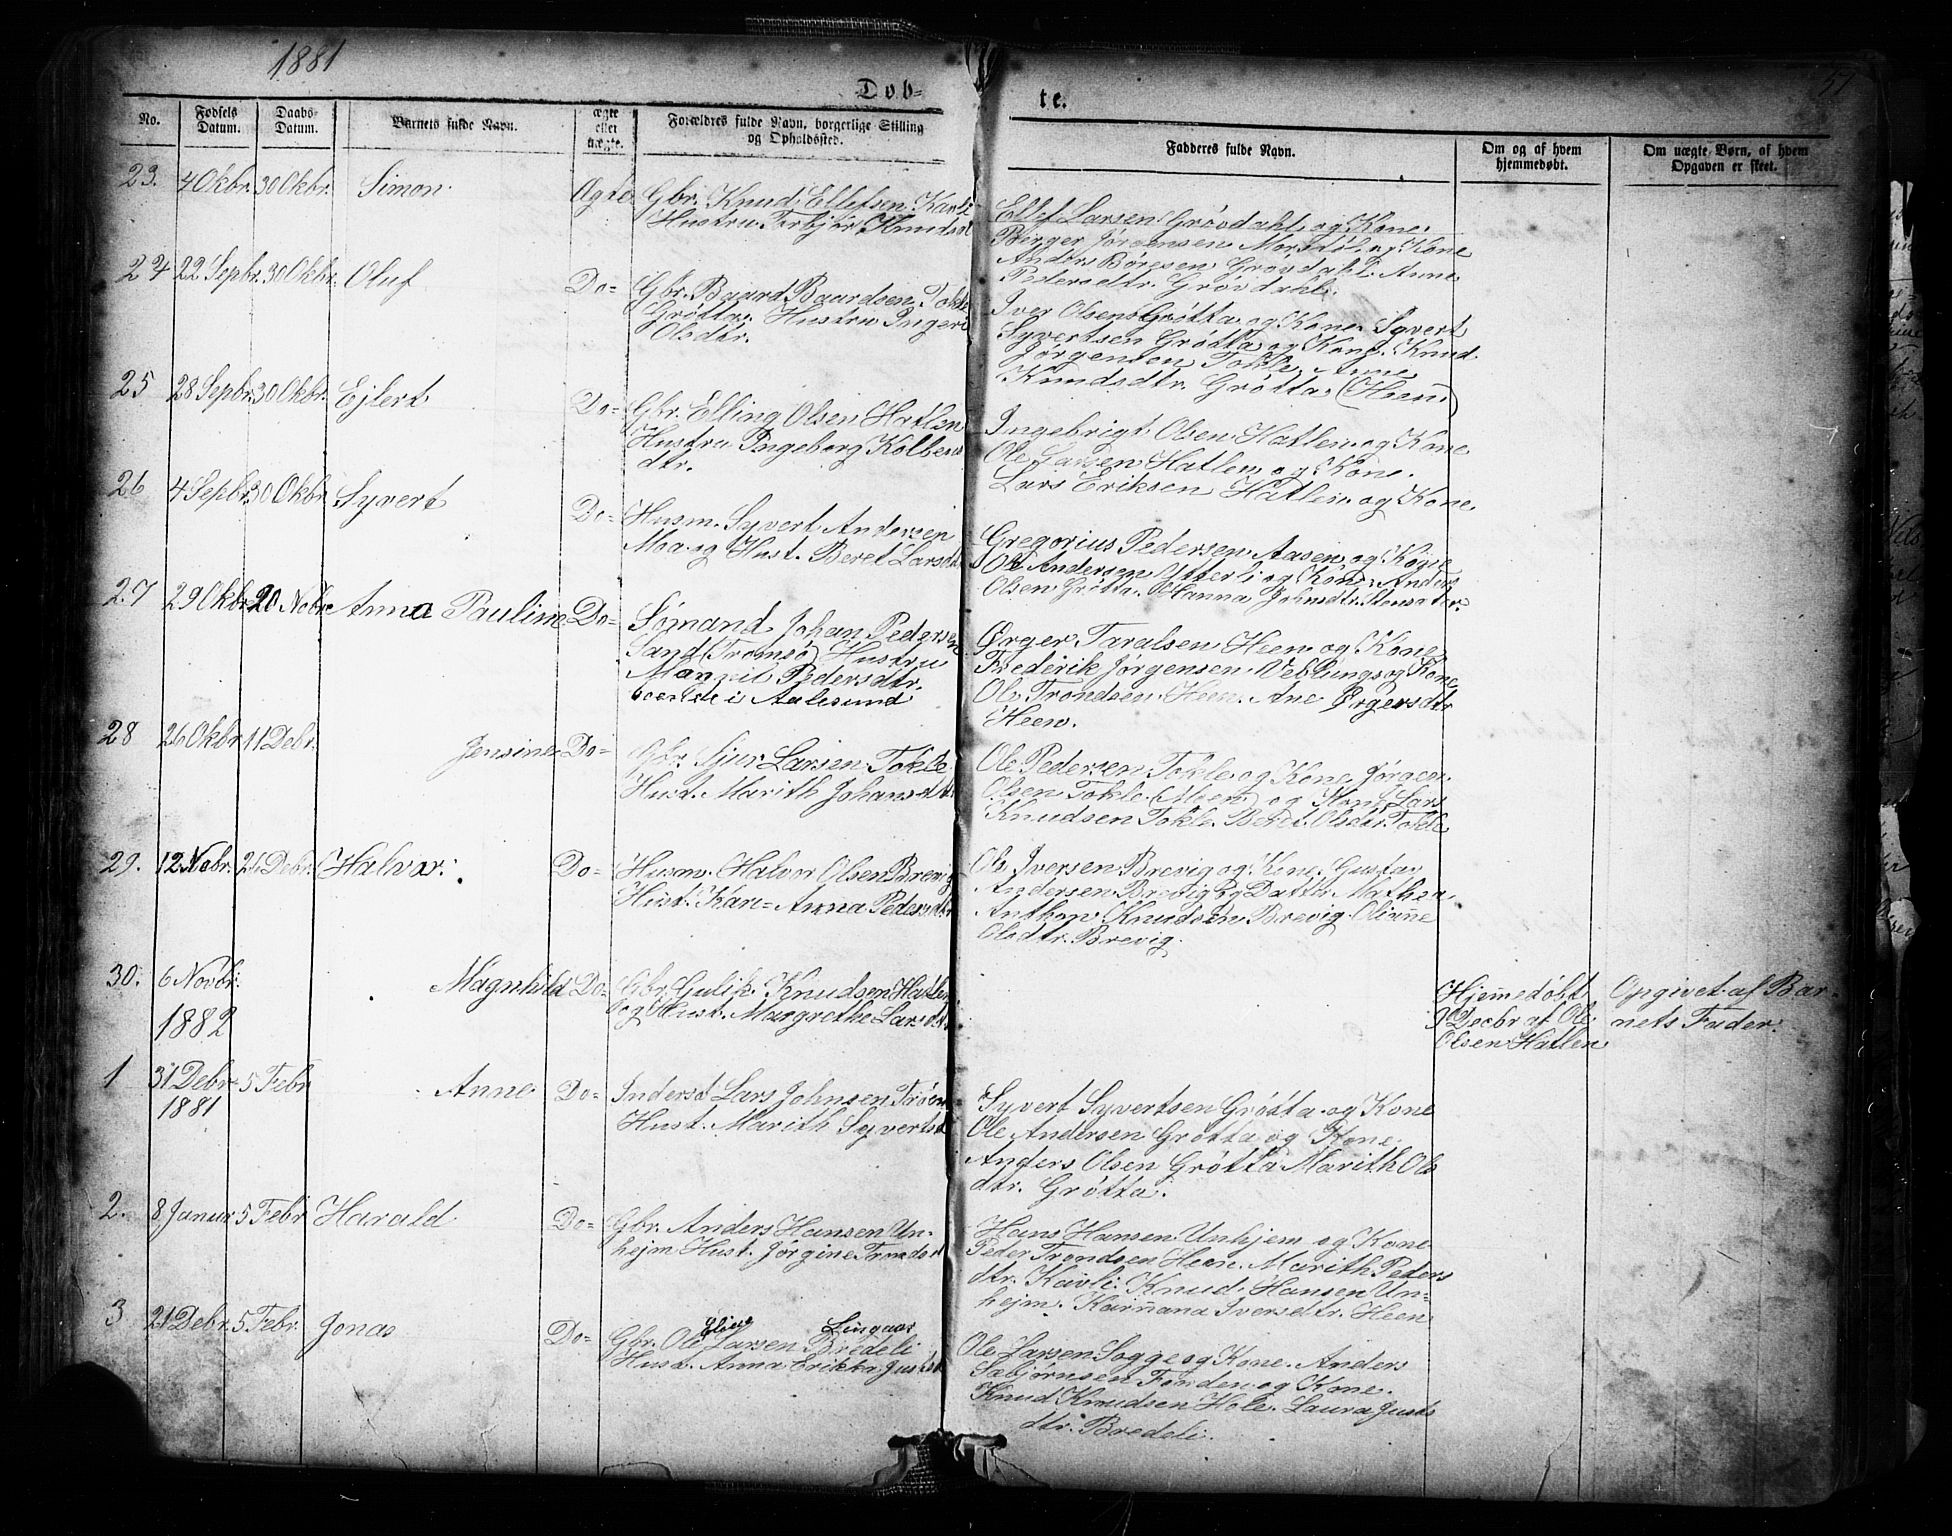 1881
51
Døb=
te.
No.
Fødsels Datum.
Daabs= Datum.
Barnets fulde Navn.
ægte eller uægte.
Forældres fulde Navn, borgerlige Stilling og Opholdssted.
Fadderes fulde Navn.
Om og af hvem hjemmedøbt.
Om uægte Børn, af hvem Opgaven er skeet.
23. 4 Okbr. 30 Okbr. Simon. Ægte Gbr. Knud Ellefsen Kavli
Hustru Torbjør Knudsd
Ellef Larsen Grøvdahl og Kone.
Birger Jørgensen Morstøl og Kone
Anders Børesen Grøvdahl. Anne
Pedersdtr. Grøvdahl.
24 22 Sepbr. 30 Okbr. Oluf Do= Gbr. Baard Baardsen Tokle
Grøtta. Hustru Ingeri
Olsdtr.
Iver Olsen Grøtta og Kone. Syvert
Syvertsen Grøtta og Kone. Knud
Jørgensen Tokle. Anne
Knudsdtr. Grøtta (Heen)
25 28 Sepbr. 30 Okbr. Ejlert Do= Gbr. Elling Olsen Hatlen
Hustru Ingeborg Kolbens
dtr.
Ingebrigt Olsen Hatlen og Kone
Ole Larsen Hatlen og Kone.
Lars Eriksen Hatlen og Kone.
26 4 Sepbr. 30 Okbr Syvert Do= Husm. Syvert Andersen
Moa og Hust. Beret Larsdt
Gregorius Pedersen Aasen og Kone
Ole Andersen Ytterli og Kone. Anders
Olsen Grøtta. Hanna Johnsdtr. Stensæter.
27 29 Okbr 20 Nobr Anna Pauline Do= Sømand Johan Pedersen
Sand (Tromsø) Hustru
Marrit Pedersdtr.
boende i Aalesund
Ørger Taralsen Heen og Kone
Frederik Jørgensen Veblungs og Kone
Ole Trondsen Heen. Ane Ørgersdtr
Heen.
28 26 Okbr 11 Debr. Jensine Do= Gbr. Sjur Larsen Tokle
Hust. Marith Johansdt
Ole Pedersen Tokle og Kone Jørgen
Olsen Tokle (Meen) og Kone Lars
Knudsen Tokle. Beret Olsdtr Tokle
29. 12 Nobr. 26 Debr. Halvor. Do= Husm. Halvor Olsen Brevig
Hust. Kari= Anna Pedersdtr
Ole Iversen Brevig og Kone. Gustav
Andersen Brevig og Dattr. Mathea
Anthon Knudsen Brevig Oliane
Olsdtr. Brevig.
30. 6 Novbr. Magnhild Do= Gbr. Gulik Knudsen Hatlen
og Hust. Margrethe Larsdt
Hjemmedøbt
9 Decbr af Ole
Olsen Hatlen
Opgivet af Bar=
nets Fader.
1882
1 31 Debr 5 Febr Anne Do= Inderst Lars Johnsen Trøen
1881 Hust. Marith Syvertsd
Syvert Syvertsen Grøtta og Kone
Ole Andersen Grøtta og Kone.
Anders Olsen Grøtta Marith Ols
dtr. Grøtta.
2. 8 Januar 5 Febr Harald Do= Gbr. Anders Hansen Un=
hejm Hust. Jørgine Trondsd
Hans Hansen Unhjem og Kone
Peder Trondsen Heen. Marith Peders
dtr. Kavli. Knud Hansen Un=
hejm. Karrnana Iversdtr. Heen
3 21 Debr. 5 Febr. Jonas Do= Gbr. Ole Larsen Bredeli
Eline Lingaas
Hust. Anna Erikka Justsd
Ole Larsen Sogge og Kone. Anders
Sæbjørnsen Fonden og Kone.
Knud Knudsen Hole. Laura Justs
dtr. Bredeli.